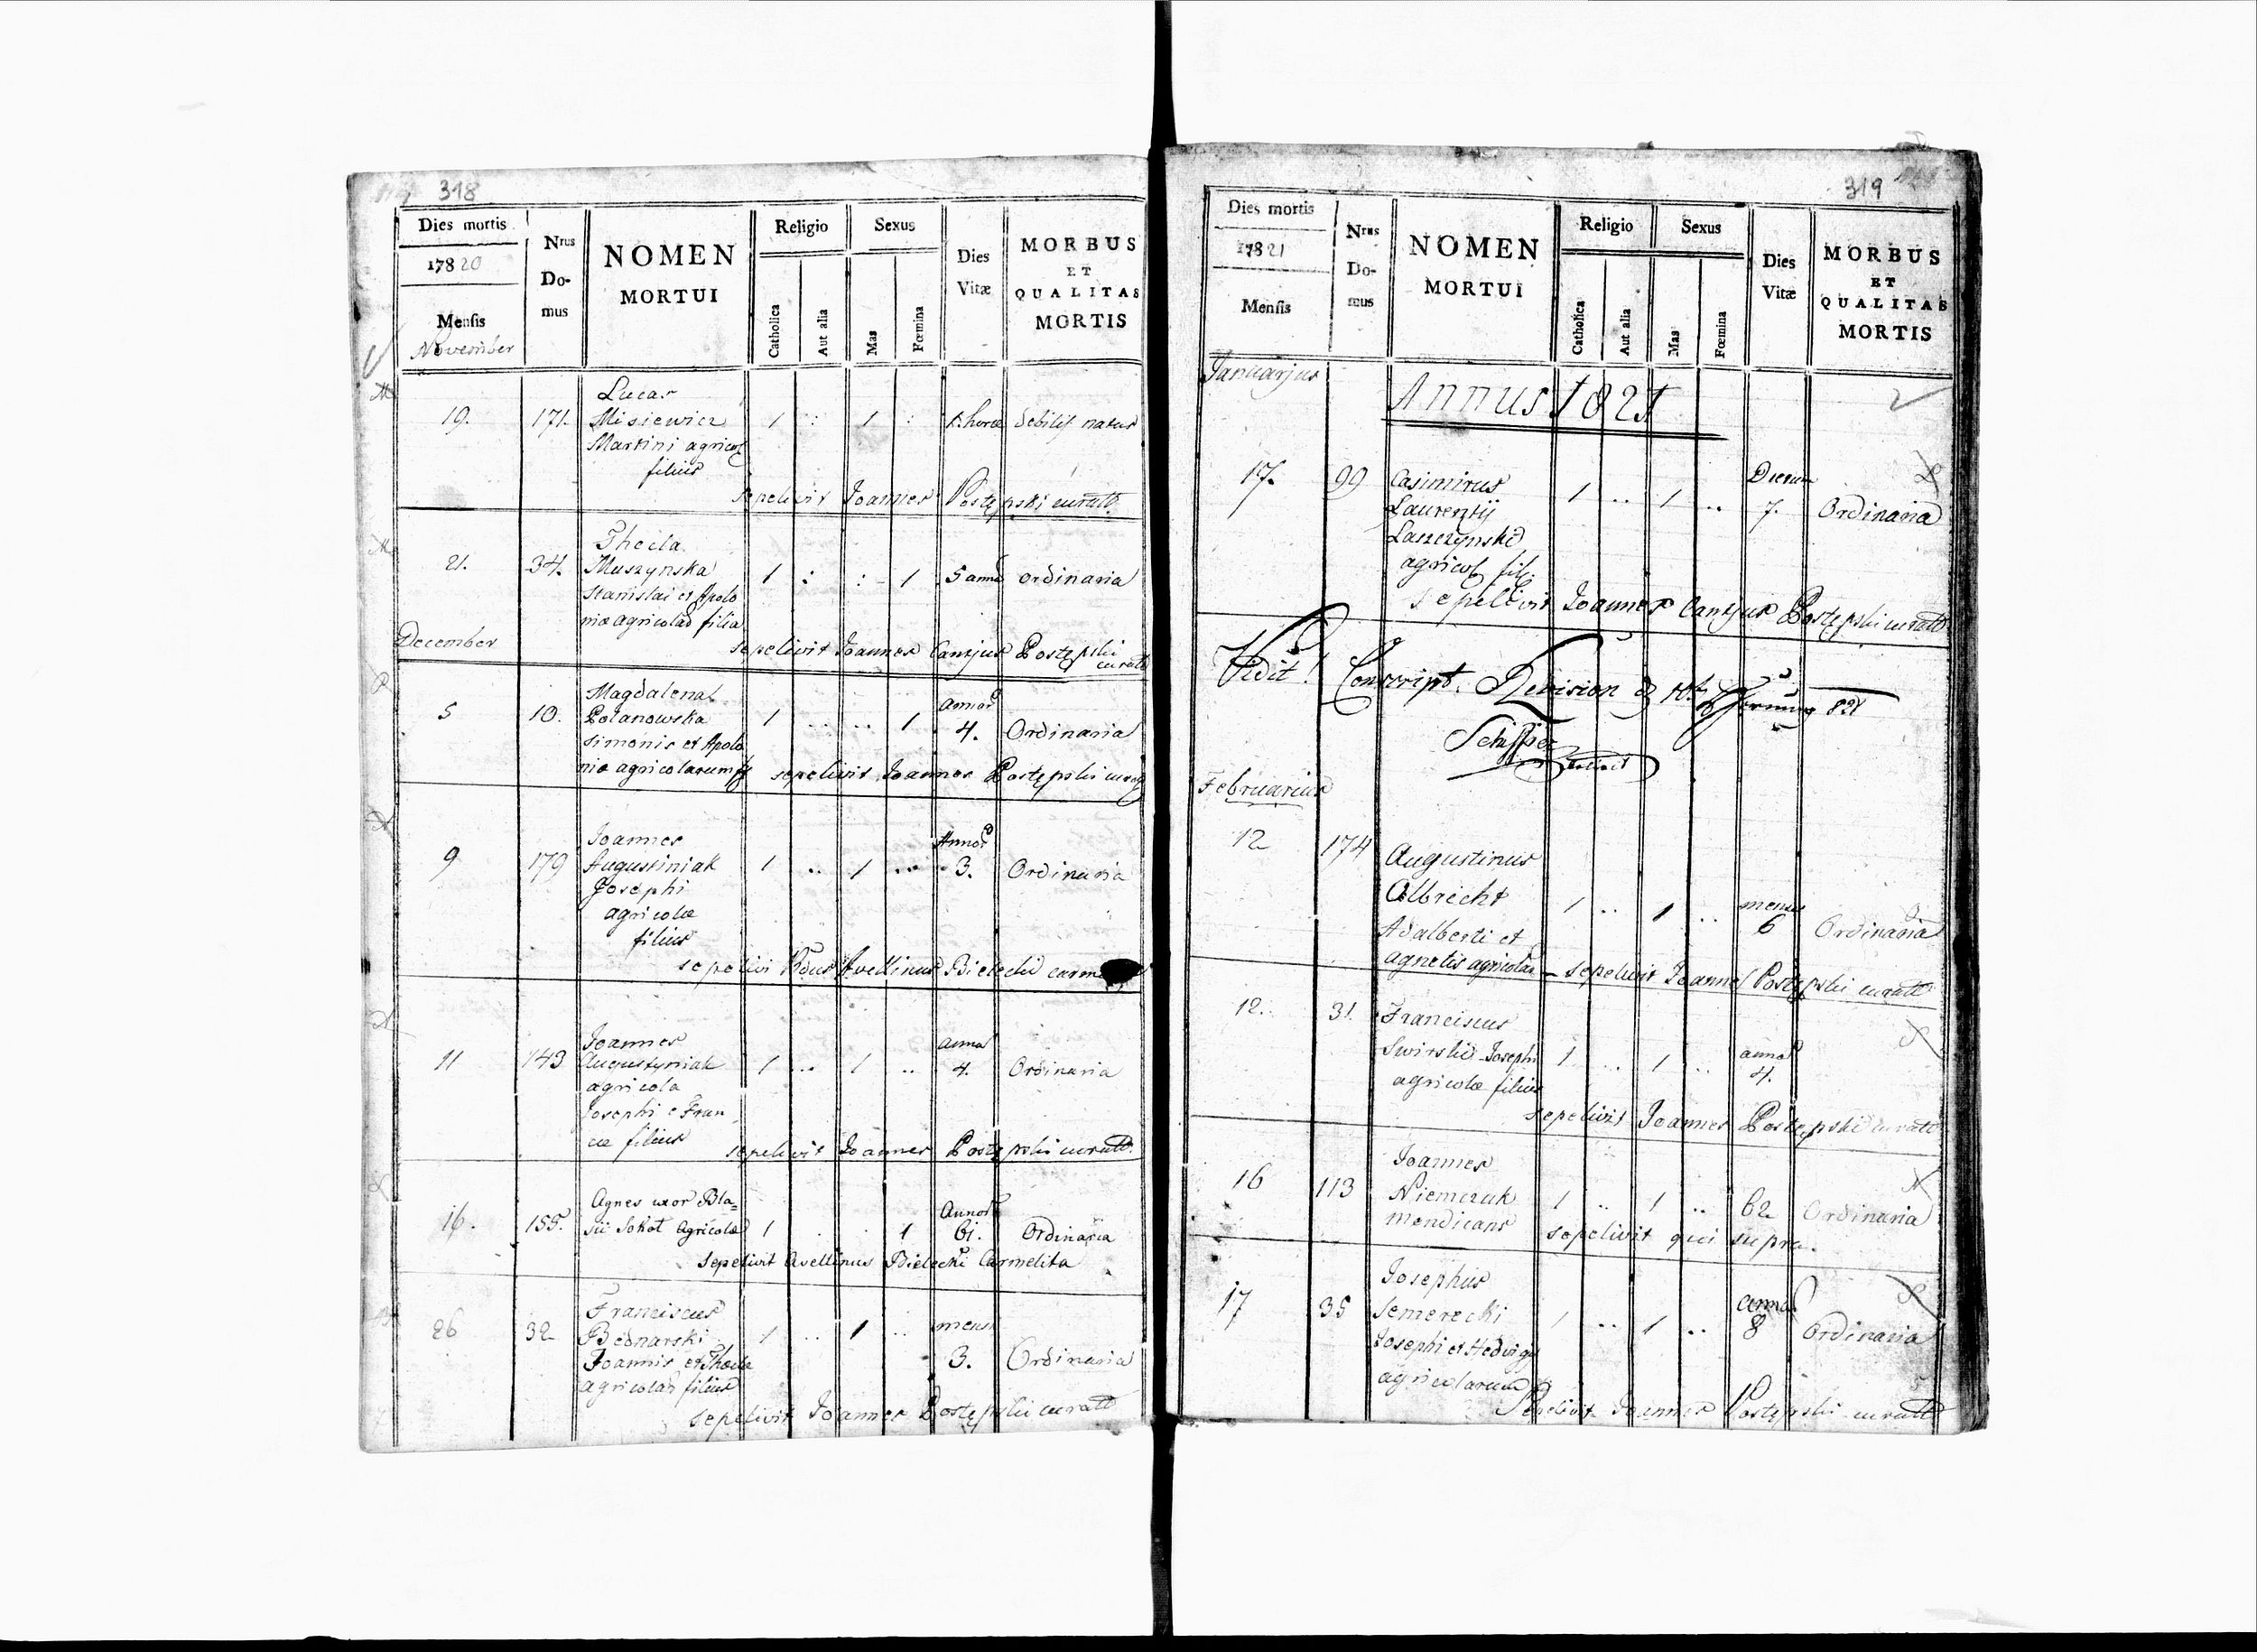 318
Dies mortis
17820
Mensis
November
Nrus
Do-
mus
NOMEN
MORTUI
Religio
Catholica
Aut alia
Sexus
Mas
Fœmina
Dies
Vitæ
MORBUS
ET
QUALITAS
MORTIS
Lucas
19. 171. Misiewicz 1 : 1 : horæ debilis natus
Martini agricol
filius
sepelivit Joannes Postępski curatt
Thecla
21. 34. Muszynska 1 : : 1 5 anno ordinaria
Stanislai et Apolo
niæ agricolar filia
December
sepelivit Joannes Cantjus Postępski
curatt
Magdalena
5 10. Potanowska 1 .. .. 1 annor 4. Ordinaria
Simonis et Apolo
niæ agricolarum
sepelivit Joannes Postępski
Joannes
9 179 Augustiniak 1 .. 1 .. Annor 3. Ordinaria
Josephi
agricolæ
filius
sepelivi Avellinus Bielecki
Joannes
11 143 Augustyniak 1 .. 1 .. anno 4. Ordinaria
agricola
Josephi e Fran
cæ filius
sepelivit Joannes Postępski curatt
Agnes uxor Bla=
16. 155. sii Sokot Agricolæ 1 . . 1 Annor 61. Ordinaria
Sepelivit Avellinus Bielecki Carmelita
Franciscus
26 32 Bednarski 1 .. 1 .. mens 3. Ordinaria
Joannis et Thecla
agricolar filius
sepelivit Joannes Postępski curatt
319
Dies mortis
17821
Mensis
Nrus
Do-
mus
NOMEN
MORTUI
Religio
Catholica
Aut alia
Sexus
Mas
Fœmina
Dies
Vitæ
MORBUS
ET
QUALITAS
MORTIS
Januarjus
Annus 1821
17. 99 Casimirus 1 .. 1 .. Dierum 7. Ordinaria
Laurentij
Laszczynski
agricol fil.
sepelivit Joannes Cantjus Postępski curatt
Vidit! Conscript. Revision 821
Februarius
12 174 Augustinus
Albrecht 1 .. 1 .. mens 6 Ordinaria
Adalberti et
agnetis agricolar – sepelivit Joannes Postępski curatt
12. 31. Franciscus
Swirski Josephi 1 .. 1 .. anno 4.
agricolæ filius
sepelivit Joannes Postępski curatt
Joannes
16 113 Niemczuk 1 .. 1 .. 62 Ordinaria
mendicans
sepelivit qui supra.
Josephus
17 35 Semerecki 1 .. 1 .. anno 8 Ordinaria
Josephi et Hedvigis
agricolarum
Sepelivit Joannes Postępski curatt